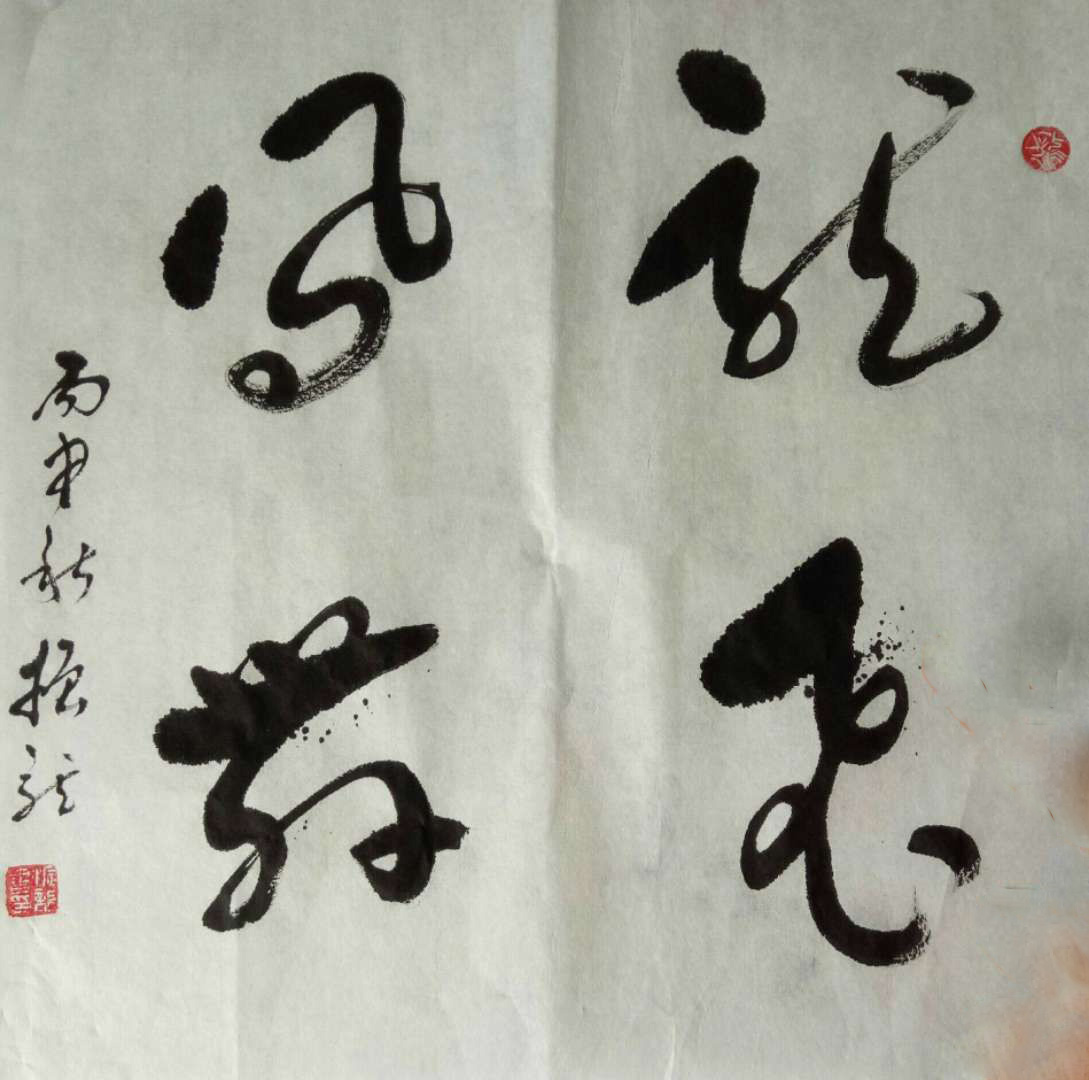 龍飛
鳳舞
丙申秋振龍